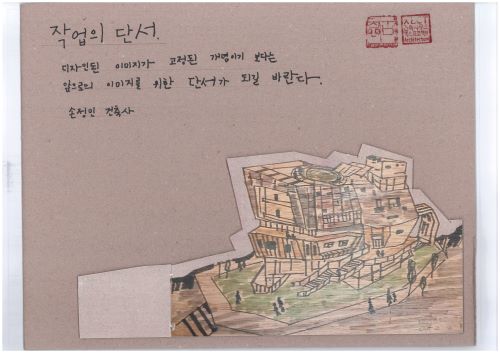 작업의 단서.
디자인된 이미지가 고정된 개념이기 보다는
앞으로의 이미지를 위한 단서가 되길 바란다.
손정민 건축사